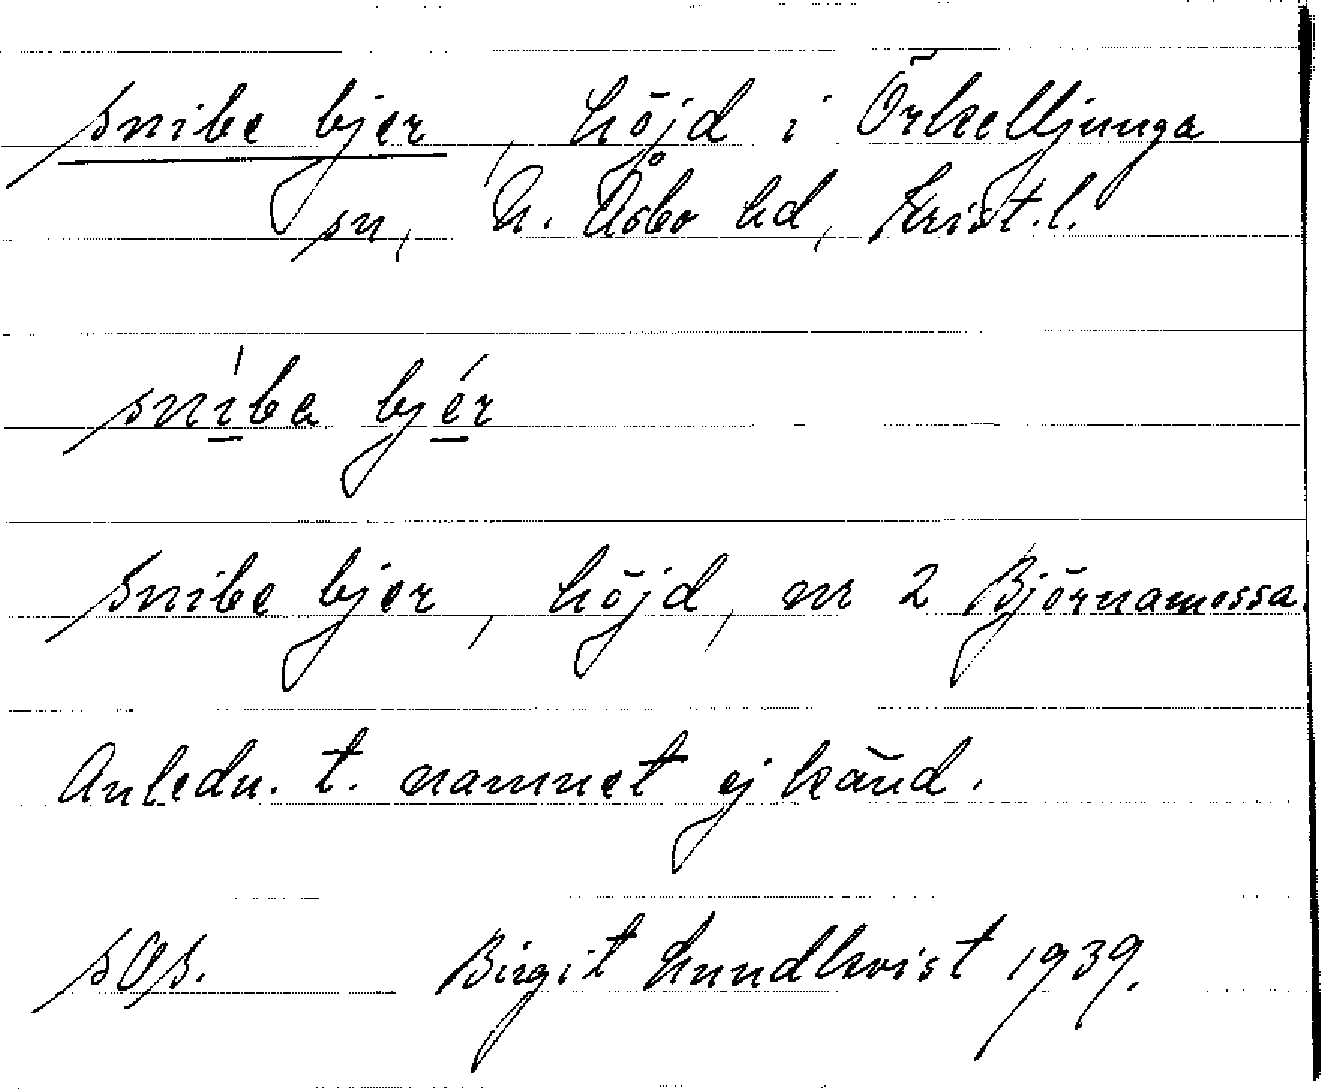 snibe bjer, höjd i Örkelljunga
sn, N. Åsbo hd, Krist. l.
sníba bjér
snibe bjer, höjd, nr 2 Björnamossa.
Anledn. t. namnet ej känd.
sOs. Birgit Lundkvist 1939.